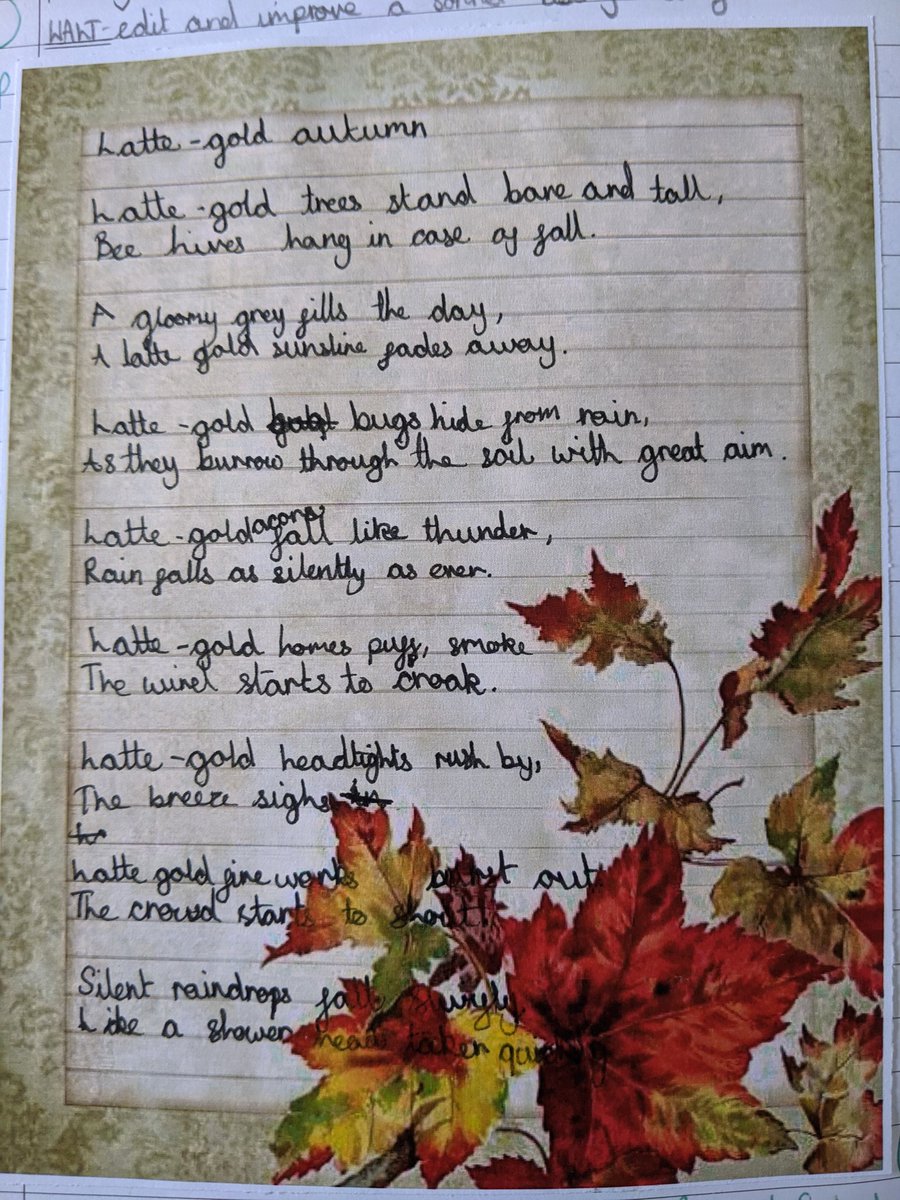 WALT-edit and improve a
Latte-gold autumn
Latte-gold trees stand bare and tall,
Bee hives hang in case of fall.
A gloomy grey fills the day,
A latte gold sunsline fades away.
Latte-gold bugs hide from rain,
As they burrow through the soil with great aim.
Latte-gold acorns fall like thunder,
Rain falls as silently as ever.
Latte-gold homes puff, smoke
The wind starts to croak.
Latte-gold headlights rush by,
The breeze sighs
Latte gold fire works burst out
The crowd starts to shout!
Silent raindrops fall
Like a shower head taken